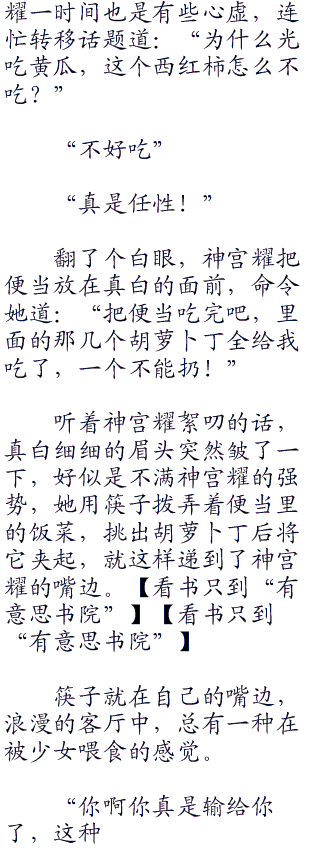 耀一时间也是有些心虚，连
忙转移话题道：“为什么光
吃黄瓜，这个西红柿怎么不
吃？”
“不好吃”
“真是任性！”
翻了个白眼，神宫耀把
便当放在真白的面前，命令
她道：“把便当吃完吧，里
面的那几个胡萝卜丁全给我
吃了，一个不能扔！”
听着神宫耀絮叨的话，
真白细细的眉头突然皱了一
下，好似是不满神宫耀的强
势，她用筷子拨弄着便当里
的饭菜，挑出胡萝卜丁后将
它夹起，就这样递到了神宫
耀的嘴边。【看书只到“有
意思书院”】【看书只到
“有意思书院”】
筷子就在自己的嘴边，
浪漫的客厅中，总有一种在
被少女喂食的感觉。
“你啊你真是输给你
了，这种